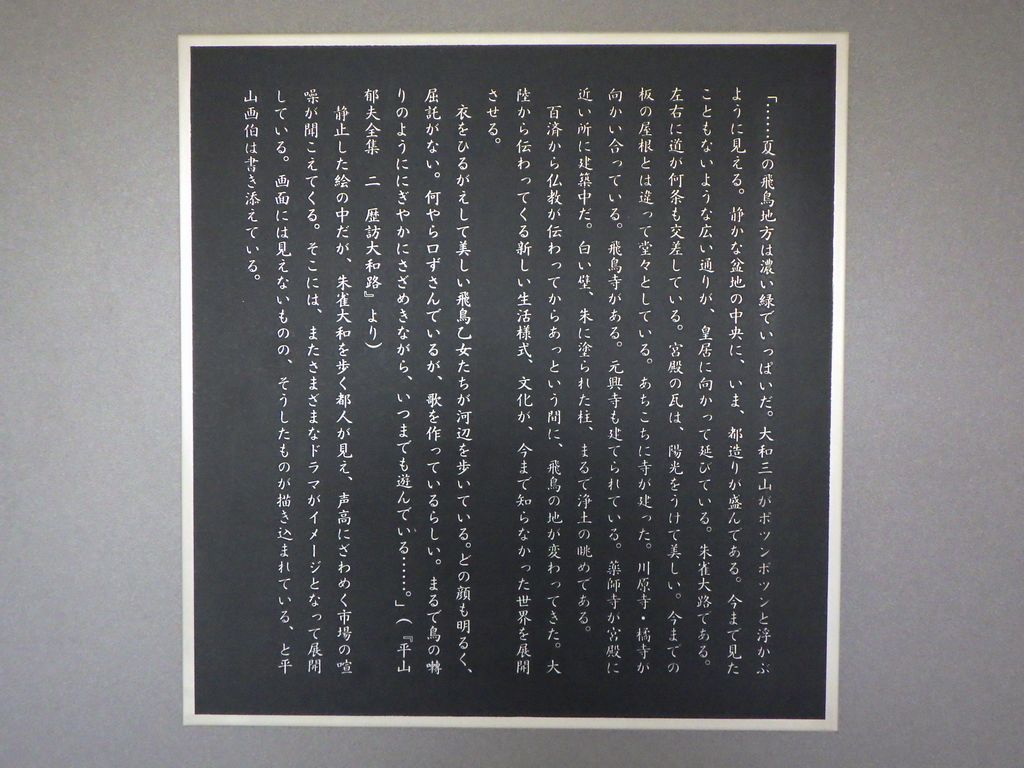 「……夏の飛鳥地方は濃い緑でいっぱいだ。大和三山がポツンポツンと浮かぶ
ように見える。静かな盆地の中央に、いま、都造りが盛んである。今まで見た
こともないような広い通りが、皇居に向かって延びている。朱雀大路である。
左右に道が何条も交差している。宮殿の瓦は、陽光をうけて美しい。今までの
板の屋根とは違って堂々としている。あちこちに寺が建った。川原寺・橘寺が
向かい合っている。飛鳥寺がある。元興寺も建てられている。薬師寺が宮殿に
近い所に建築中だ。白い壁、朱に塗られた柱、まるで浄土の眺めである。
百済から仏教が伝わってからあっという間に、飛鳥の地が変わってきた。大
陸から伝わってくる新しい生活様式、文化が、今まで知らなかった世界を展開
させる。
衣をひるがえして美しい飛鳥乙女たちが河辺を歩いている。どの顔も明るく、
屈託がない。何やら口ずさんでいるが、歌を作っているらしい。まるで鳥の囀
りのようににぎやかにさざめきながら、いつまでも遊んでいる……。」(『平山
郁夫全集 二 歴訪大和路』より)
静止した絵の中だが、朱雀大和を歩く都人が見え、声高にざわめく市場の喧
噪が聞こえてくる。そこには、またさまざまなドラマがイメージとなって展開
している。画面には見えないものの、そうしたものが描き込まれている、と平
山画伯は書き添えている。